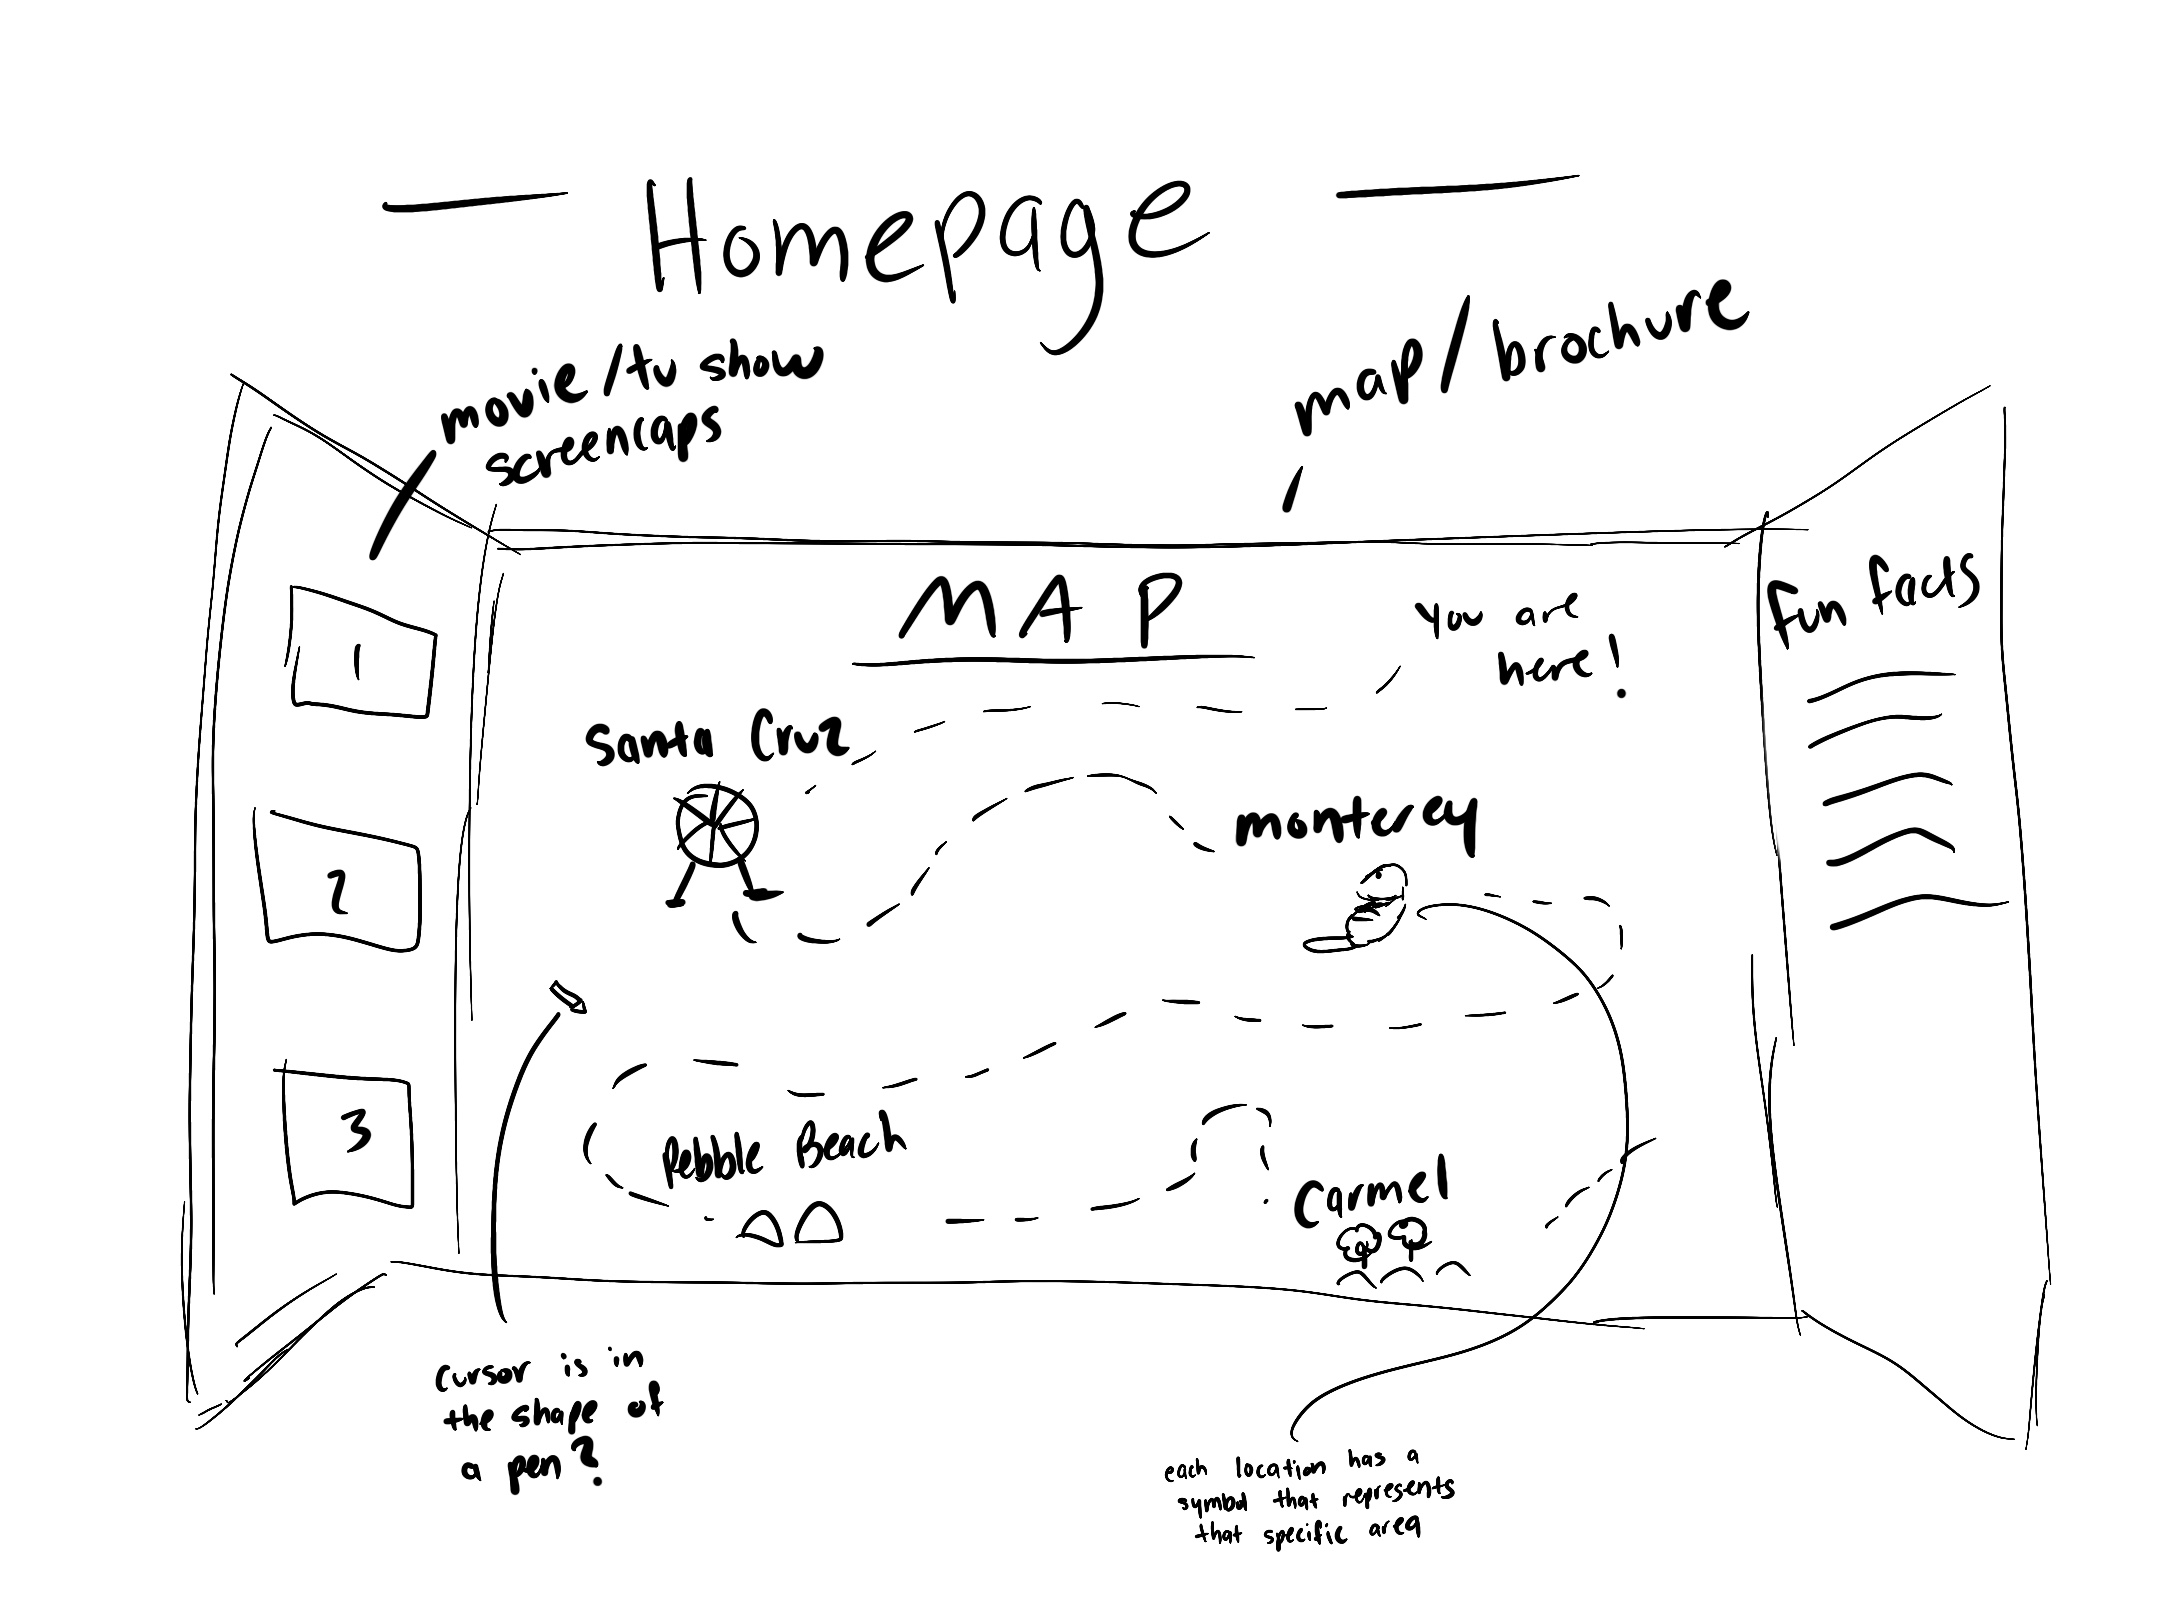 Homepage
movie/tv show
screencaps
map/brochure
MAP
You are
here!
fun facts
1
Santa Cruz
monterey
2
3
Pebble Beach
Carmel
cursor is in
the shape of
a pen?
each location has a
symbol that represents
that specific area